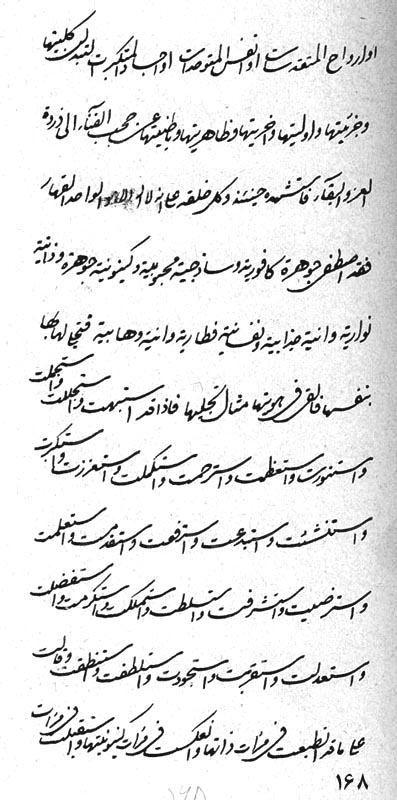 او ارواح المتقدسات او انفس المتوحدات او اجساد المتكبرات لتبدلن كليتها
وجزئيتها واوليتها واخريتها وظاهريتها وباطنيتها عن حجب الفناء الى ذروة
العز والبقاء فاستشهد حينئذ وكل خلقه على انه لا اله الا هو الواحد القهار
فقد اصطفى جوهرة كافورية وساذجية محبوبية وكينونية جوهرة وذاتية
نوارية وانية جذابية ونفسانية فطارية وانية وهابية فتجلى لها بها
بنفسها فالقى فى هويتها مثال تجليها فاذا قد استبهت واستجللت واستجملت
واستنورت واستعظمت واسترحمت واستكملت واستعززت واستكبرت
واستنشئت واستبدعت واسترفعت واستقدمت واستعلمت
واسترضيت واستشرفت واستسلطت واستملكت واستكرمت واستفضلت
واستعدلت واستقربت واستجودت واستلطفت واستنطقت وقالت
على ما قد انطبعت فى مرآت ذاتها وانعكست فى مرآت كينونيتها واستقبلت فى مرآت
١٦٨